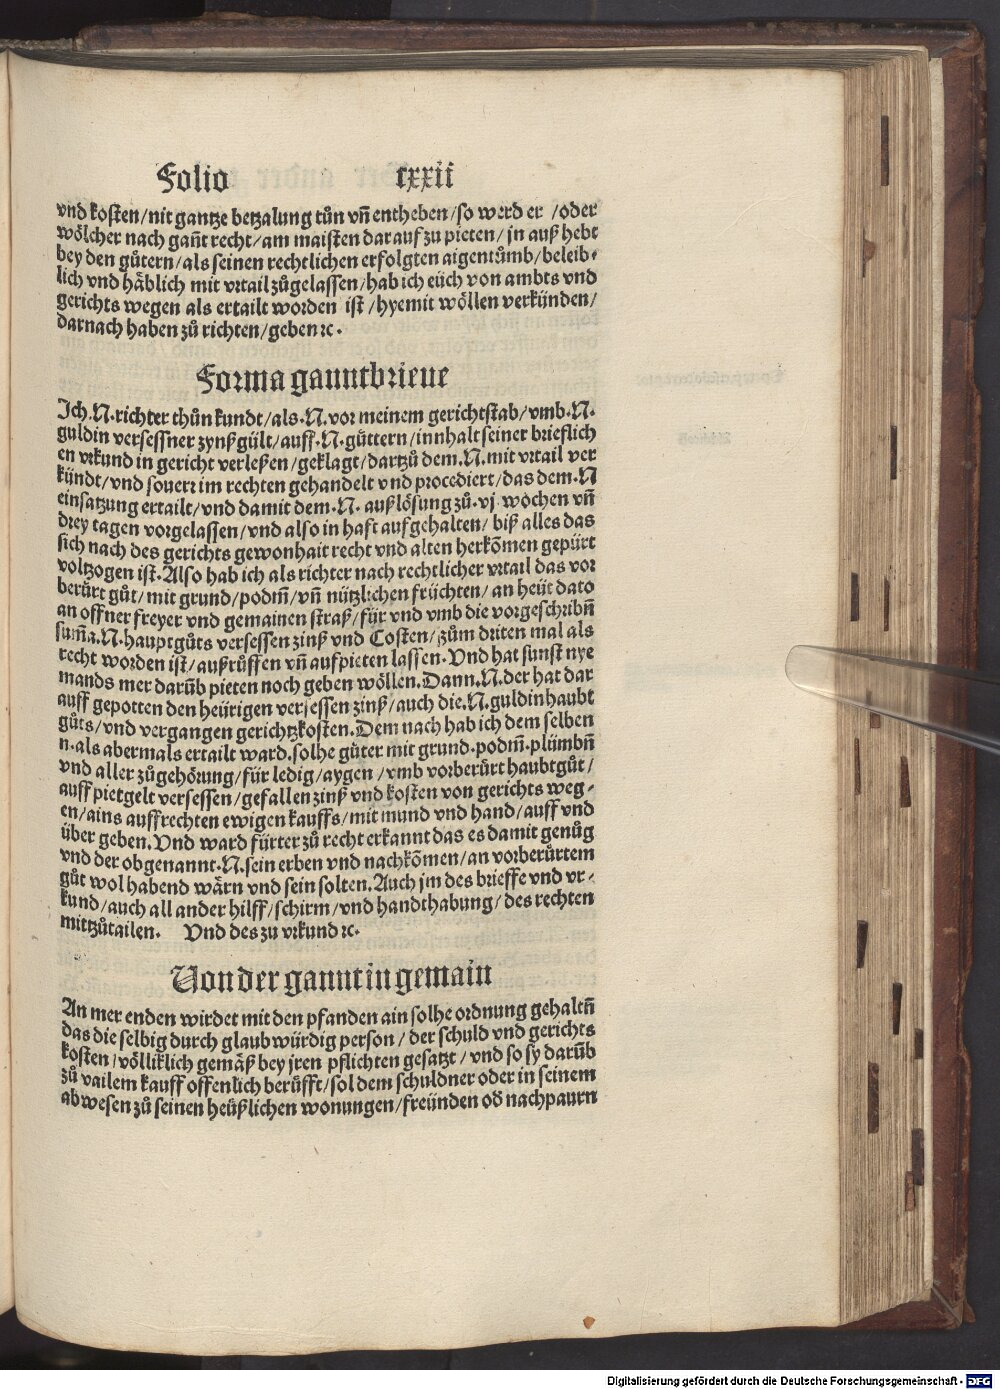 Folio cxxii
vnd kosten/nit gantze betzalung tůn vñ entheben/so werd er /oder
wölcher nach gañt recht/am maisten darauf zu pieten/jn auß hebt
bey den gůtern/als seinen rechtlichen erfolgten aigentůmb/beleib-
lich vnd häblich mit vrtail zůgelassen/hab ich eüch von ambts vnd
gerichts wegen als ertailt worden ist/hyemit wöllen verkünden/
darnach haben zů richten/geben ꝛc.
Forma ganntbrieue
Ich.N.richter thůn kundt/als.N.vor meinem gerichtstab/vmb.N.
guldin versessner zynßgült/auff.N.gůttern/innhalt seiner brieflich
en vrkund in gericht verleßen/geklagt/dartzů dem.N.mit vrtail ver
kündt/vnd souerr im rechten gehandelt vnd procediert/das dem.N
einsatzung ertailt/vnd damit dem.N. außlösung zů.vj.wochen vñ
drey tagen vorgelassen/vnd also in haft aufgehalten/ biß alles das
sich nach des gerichts gewonhait recht vnd alten herkōmen gepürt
voltzogen ist.Also hab ich als richter nach rechtlicher vrtail das vor
berůrt gůt/mit grund/podm̃/vñ nützlichen früchten/an heüt dato
an offner freyer vnd gemainen straß/für vnd vmb die vorgeschribñ
sum̃a.N.hauptgůts versessen zinß vnd Costen/zům driten mal als
recht worden ist/außrůffen vñ aufpieten lassen.Vnd hat sunst nye
mands mer darũb pieten noch geben wöllen.Dann.N.der hat dar
auff gepotten den heürigen versessen zinß/auch die.N.guldin haubt
gůts/vnd vergangen gerichtzkosten.Dem nach hab ich dem selben
n.als abermals ertailt ward.solhe gůter mit grund.podm̃.plůmbñ
vnd aller zůgehörung/für ledig/aygen /vmb vorberůrt haubtgůt/
auff pietgelt versessen/gefallen zinß vnd kosten von gerichts weg-
en/ains auffrechten ewigen kauffs/mit mund vnd hand/auff vnd
über geben.Vnd ward fürter zů recht erkannt das es damit genůg
vnd der obgenannt.N.sein erben vnd nachkōmen/an vorberůrtem
gůt wol habend wärn vnd sein solten.Auch jm des brieffe vnd vr-
kund/auch all ander hilff/schirm/vnd handthabung/des rechten
mittzůtailen. Vnd des zu vrkund ꝛc.
Von der gannt in gemain
An mer enden wirdet mit den pfanden ain solhe ordnung gehaltñ
das die selbig durch glaubwürdig person/ der schuld vnd gerichts
kosten/völliklich gemäß bey jren pflichten gesatzt/vnd so sy darũb
zů vailem kauff offenlich berůfft/sol dem schuldner oder in seinem
abwesen zů seinen heüßlichen wonungen/freünden od̄ nachpaurn
Digitalisierung gefördert durch die Deutsche Forschungsgemeinschaft - DFG